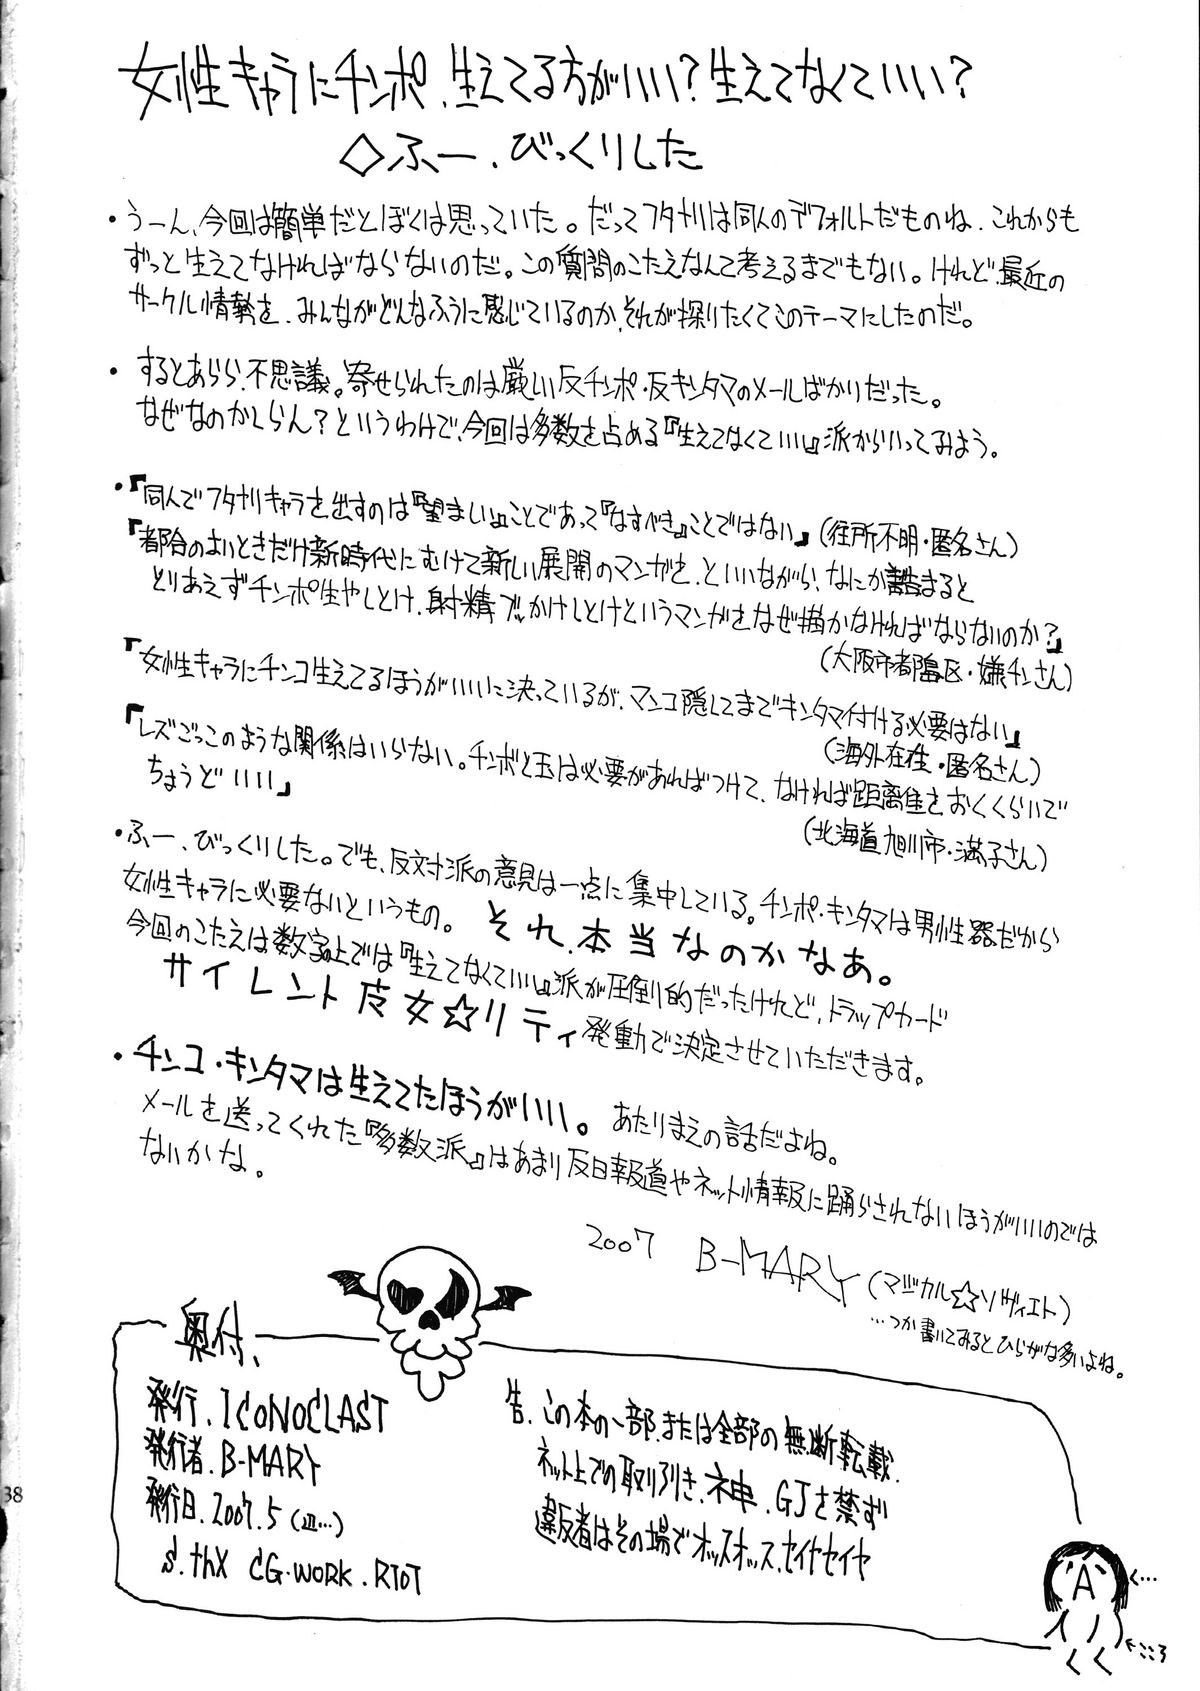 女性キャラにチンポ、生えてる方がいい?生えてなくていい?
◇ふー、びっくりした
・うーん、今回は簡単だとぼくは思っていた。だってフタナリは同人のデフォルトだものね、これからも
ずっと生えてなければならないのだ。この質問のこたえなんて考えるまでもない。けれど、最近の
サークル情勢を、みんながどんなふうに感じているのか、それが探りたくてこのテーマにしたのだ。
・するとあらら、不思議。寄せられたのは厳しい反チンポ・反キンタマのメールばかりだった。
なぜなのかしらん?というわけで、今回は多数を占める『生えてなくていい』派からいってみよう。
・『同人でフタナリキャラを出すのは『望ましい』ことであって『なすべき』ことではない』(住所不明・匿名さん)
『都合のよいときだけ新時代にむけて新しい展開のマンガを、といいながら、なにか詰まると
とりあえずチンポ生やしとけ、射精でぶっかけしとけというマンガをなぜ描かなければならないのか?』
(大阪市都島区・嫌チンさん)
『女性キャラにチンコ生えてるほうがいいに決っているが、マンコ隠してまでキンタマ付ける必要はない』
(海外在住・匿名さん)
『レズごっこのような関係はいらない。チンポと玉は必要があればつけて、なければ距離をおくくらいで
ちょうどいい』
(北海道旭川市・満子さん)
・ふー、びっくりした。でも、反対派の意見は一点に集中している。チンポ・キンタマは男性器だから
女性キャラに必要ないというもの。それ、本当なのかなあ。
今回のこたえは数字上では『生えてなくていい』派が圧倒的だったけれど、トラップカード
サイレント魔女☆リティ発動で決定させていただきます。
・チンコ・キンタマは生えてたほうがいい。あたりまえの話だよね。
メールを送ってくれた『多数派』はあまり反日報道やネット情報に踊らされないほうがいいのでは
ないかな。
2007 B-MARY(マジカル☆ソヴィエト)
…つか書いてみるとひらがな多いよね。
奥付、
発行、ICONOCLAST
発行者、B-MARY
発行日、2007.5
S.thX CG-WORK.RTOT
告、この本の一部、または全部の無断転載、
ネット上での取り引き、ネ申、GJを禁ず
違反者はその場でオッスオッス、セイヤセイヤ
く…
←こころ
38